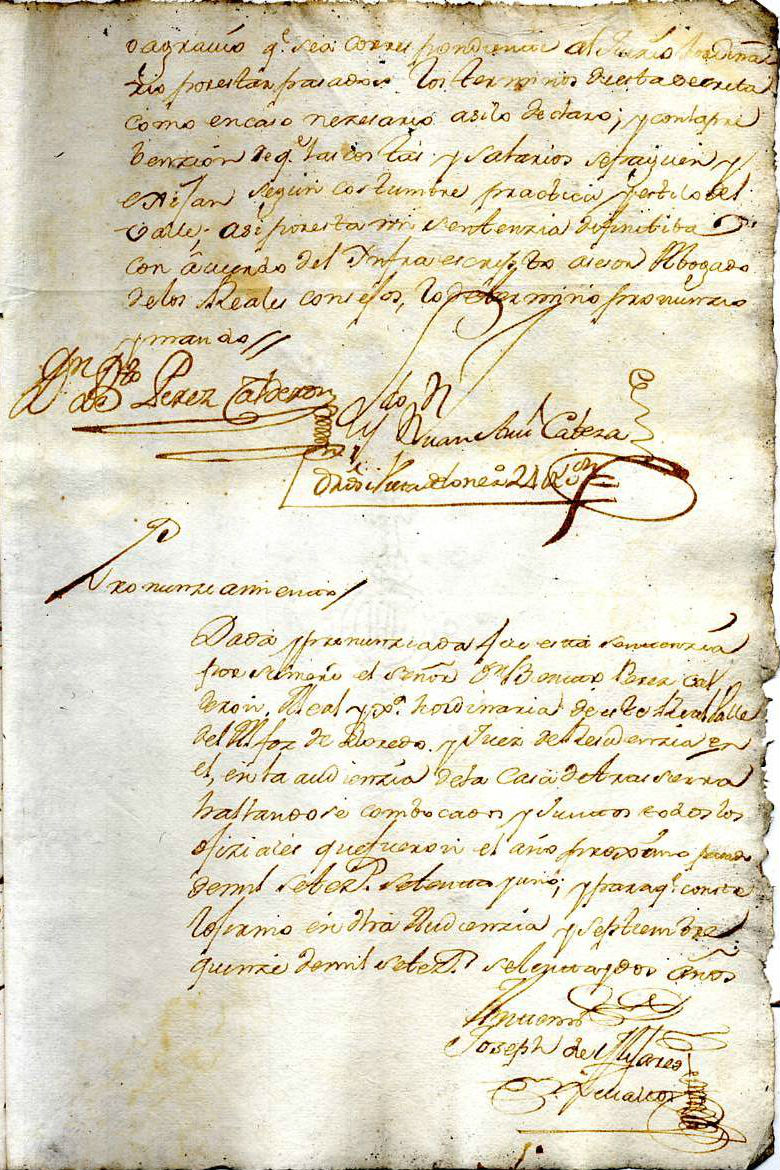 o agravio q.e sea correspondiente al Juicio hordina
rio por estar pasados los terminos de esta decreta
como en caso nezesario asi lo declaro; y con la pre
benzion de q.e las costas y salarios se paguen y
exijan segun costumbre practica y estilo del
Valle; asi por esta mi sentenzia difinitiba
con acuerdo del Infraescripto asesor Abogado
de los Reales consejos, lo determino pronunzio
y mando //
Dn Perez Calderon
Juan Cabeza
Pronunziamiento /
Dada y pronunziada fue esta sentenzia
por su mrd el señor Dn Benito Perez Cal
deron, Alcal y hordinaria de este Real Valle
del Alfoz de Lloredo y Juez de Residenzia en
el, en la audienzia de la Casa de tras sierra
hallandose combocados y Juntos todos los
ofiziales que fueron el año proximo pasado
de mil setez.s setenta y uno; y para q.e conste
lo firmo en dha Audienzia y septiembre
quinze de mil setez.s setenta y dos años
Ante mi
Joseph de